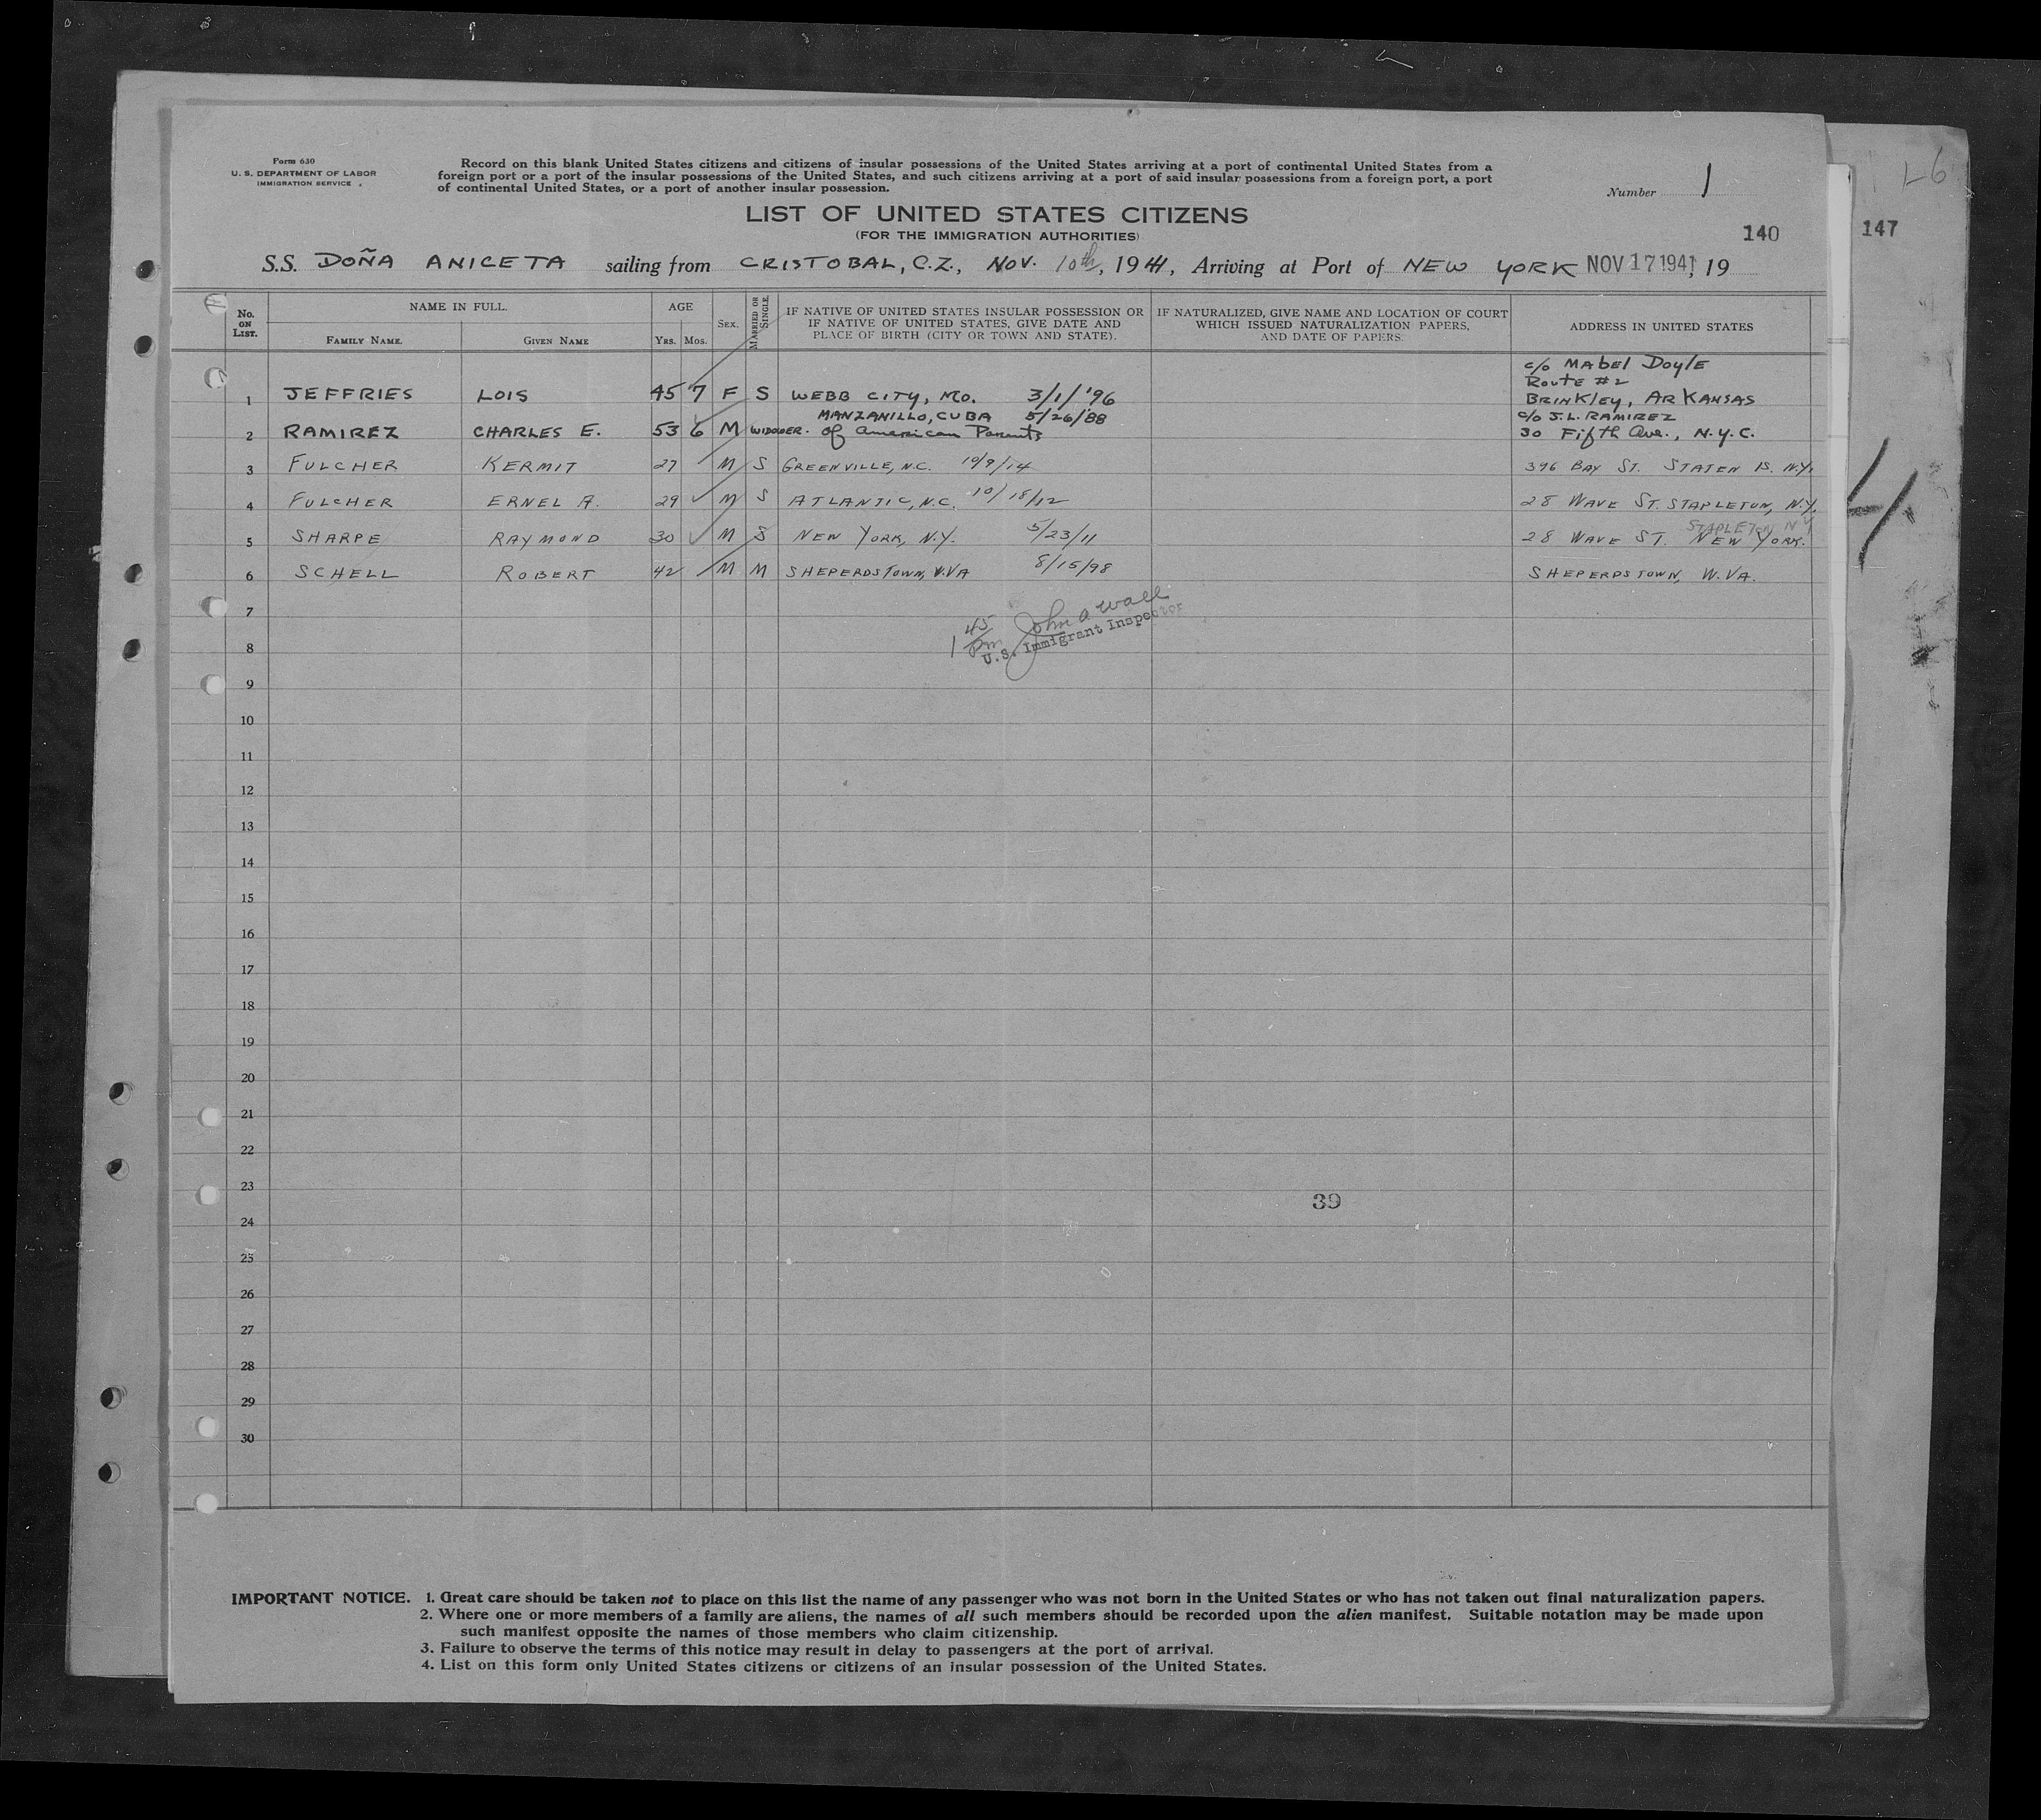 Form 630
U. S. DEPARTMENT OF LABOR
IMMIGRATION SERVICE
Record on this blank United States citizens and citizens of insular possessions of the United States arriving at a port of continental United States from a
foreign port or a port of the insular possessions of the United States, and such citizens arriving at a port of said insular possessions from a foreign port, a port
of continental United States, or a port of another insular possession.
Number 1
L6
LIST OF UNITED STATES CITIZENS
(FOR THE IMMIGRATION AUTHORITIES)
140
147
S.S. DOÑA ANICETA sailing from CRISTOBAL, C.Z., NOV. 10th, 1941, Arriving at Port of NEW YORK NOV 17 1941, 19
No. ON LIST. NAME IN FULL. FAMILY NAME. GIVEN NAME AGE YRS. MOS. SEX. MARRIED OR SINGLE. IF NATIVE OF UNITED STATES INSULAR POSSESSION OR IF NATIVE OF UNITED STATES, GIVE DATE AND PLACE OF BIRTH (CITY OR TOWN AND STATE). IF NATURALIZED, GIVE NAME AND LOCATION OF COURT WHICH ISSUED NATURALIZATION PAPERS, AND DATE OF PAPERS. ADDRESS IN UNITED STATES
c/o MABEL DOYLE
ROUTE #2
1 JEFFRIES LOIS 45 7 F S WEBB CITY, MO. 3/1/'96 BRINKLEY, ARKANSAS
MANZANILLO, CUBA 5/26/'88 c/o J.L. RAMIREZ
2 RAMIREZ CHARLES E. 53 6 M WIDOWER. of American Parents 30 Fifth Ave., N.Y.C.
3 FULCHER KERMIT 27 M S GREENVILLE, N.C. 10/9/14 396 BAY ST. STATEN IS. N.Y.
4 FULCHER ERNEL A. 29 M S ATLANTIC, N.C. 10/18/12 28 WAVE ST. STAPLETON, N.Y.
STAPLETON NY
5 SHARPE RAYMOND 30 M S NEW YORK, N.Y. 5/23/11 28 WAVE ST. NEW YORK.
6 SCHELL ROBERT 42 M M SHEPERDSTOWN, W.VA 8/15/98 SHEPERDSTOWN, W.VA.
7
1 45 pm John A Wall
U.S. Immigrant Inspector
8
9
10
11
12
13
14
15
16
17
18
19
20
21
22
23
39
24
25
26
27
28
29
30
IMPORTANT NOTICE. 1. Great care should be taken not to place on this list the name of any passenger who was not born in the United States or who has not taken out final naturalization papers.
2. Where one or more members of a family are aliens, the names of all such members should be recorded upon the alien manifest. Suitable notation may be made upon
such manifest opposite the names of those members who claim citizenship.
3. Failure to observe the terms of this notice may result in delay to passengers at the port of arrival.
4. List on this form only United States citizens or citizens of an insular possession of the United States.